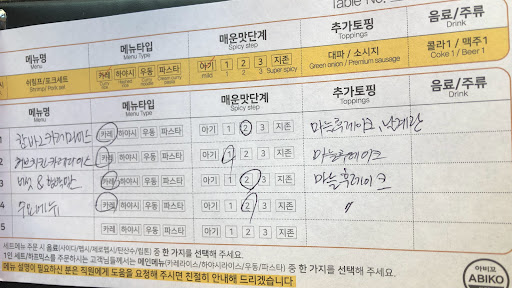 Table No.
메뉴명 메뉴타입 매운맛단계 추가토핑 음료/주류
Menu Menu Type Spicy step Toppings Drink
쉬림프/포크세트 카레 하야시 우동 파스타 아기 1 2 3 지존 대파 / 소시지 콜라1 / 맥주1
Shrimp/ Pork set mild Super spicy Green onion / Premium sausage Coke 1 / Beer 1
메뉴명 메뉴타입 매운맛단계 추가토핑 음료/주류
Menu Menu Type Spicy step Toppings Drink
1 카레 하야시 우동 파스타 아기 1 2 3 지존 마늘후레이크
2 카레 하야시 우동 파스타 아기 1 2 3 지존 마늘후레이크
3 버섯 & 카레 하야시 우동 파스타 아기 1 2 3 지존 마늘후레이크
4 카레 하야시 우동 파스타 아기 1 2 3 지존 〃
5 카레 하야시 우동 파스타 아기 1 2 3 지존
세트메뉴 주문 시 음료(사이다/펩시/제로펩시/탄산수/립톤) 중 한 가지를 선택해 주세요.
1인 세트/하프믹스를 주문하시는 고객님들께서는 메인메뉴(카레라이스/하야시라이스/우동/파스타) 중 한 가지를 선택해 주세요.
메뉴 설명이 필요하신 분은 직원에게 도움을 요청해 주시면 친절히 안내해 드리겠습니다
아비꼬
ABIKO